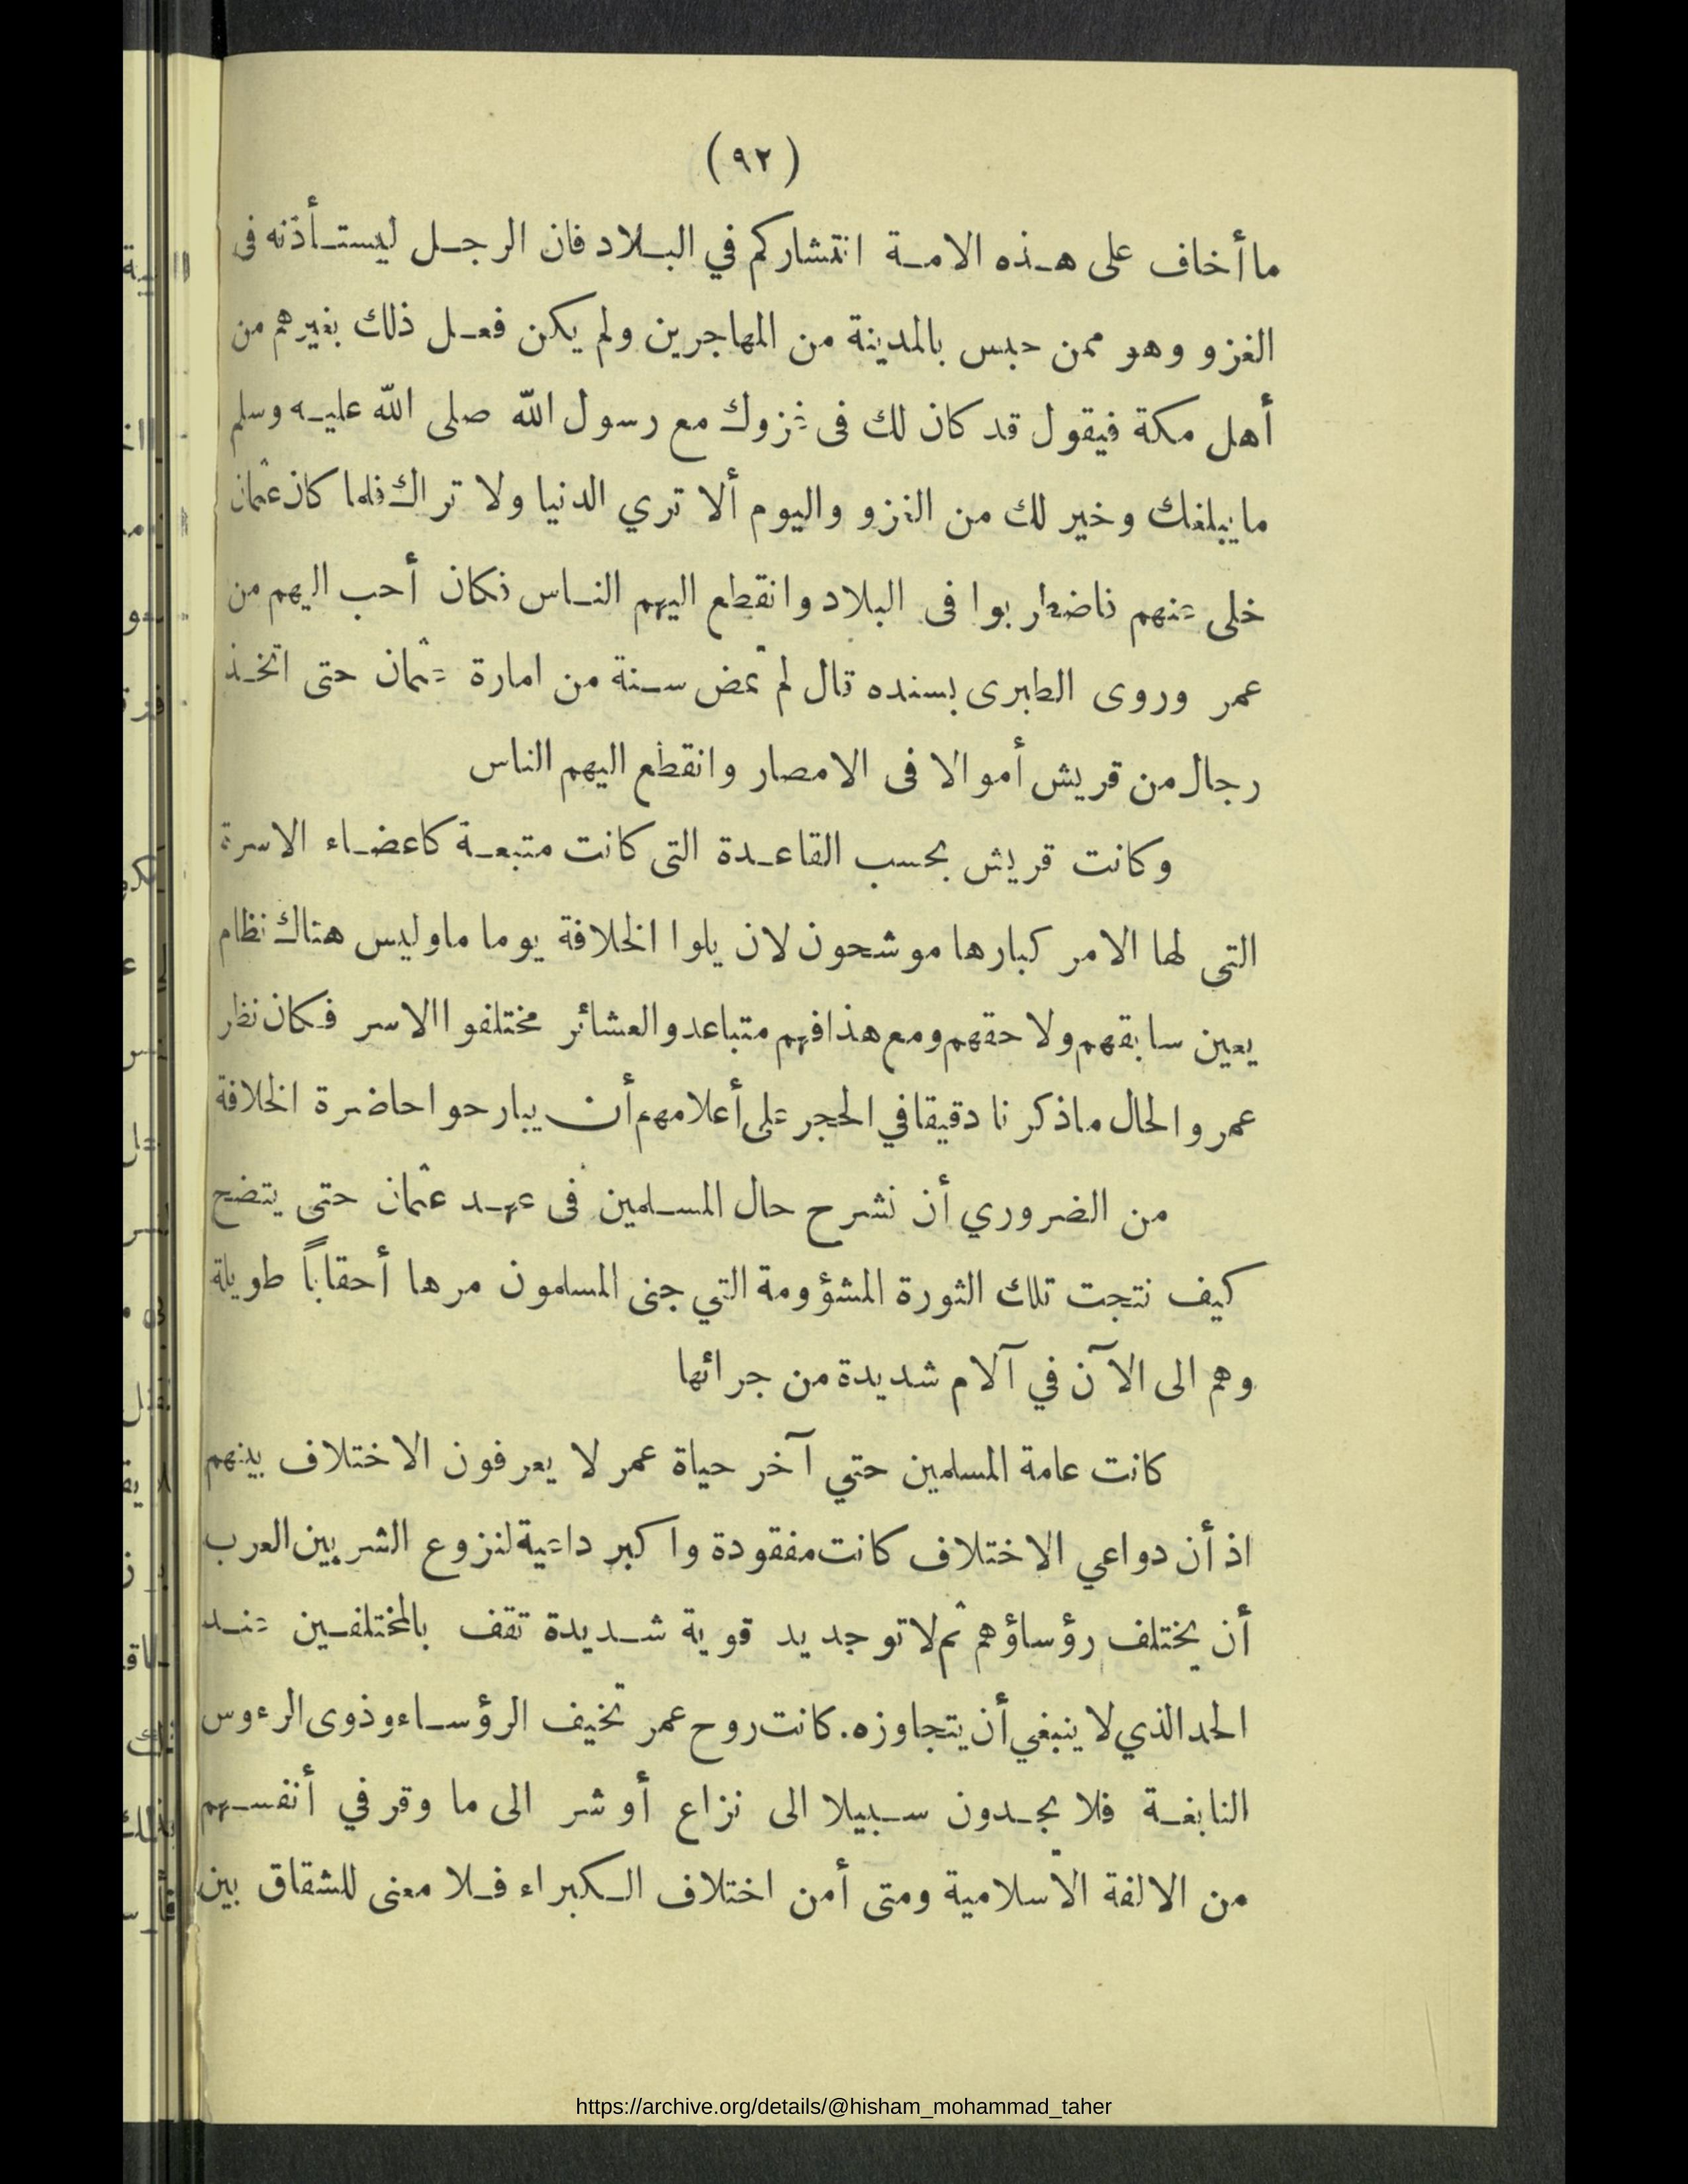 (٩٢)
ما أخاف على هذه الامة انتشاركم في البلاد فان الرجل ليستأذنه فى
الغزو وهو ممن حبس بالمدينة من المهاجرين ولم يكن فعل ذلك بغيرهم من
أهل مكة فيقول قد كان لك فى غزوك مع رسول الله صلى الله عليه وسلم
ما يبلغك وخير لك من الغزو واليوم ألا تري الدنيا ولا تراك فلما كان عثمان
خلى عنهم فاضطربوا فى البلاد وانقطع اليهم الناس فكان أحب اليهم من
عمر وروى الطبرى بسنده قال لم تمض سنة من امارة عثمان حتى اتخذ
رجال من قريش أموالا فى الامصار وانقطع اليهم الناس
وكانت قريش بحسب القاعدة التى كانت متبعة كاعضاء الاسرة
التى لها الامر كبارها موشحون لان يلوا الخلافة يوما ما وليس هناك نظام
يعين سابقهم ولاحقهم ومع هذا فهم متباعدو العشائر مختلفوا الاسر فكان نظر
عمر والحال ما ذكرنا دقيقا في الحجر على أعلامهم أن يبارحوا حاضرة الخلافة
من الضروري أن نشرح حال المسلمين فى عهد عثمان حتى يتضح
كيف نتجت تلك الثورة المشؤومة التي جنى المسلمون مرها أحقاباً طويلة
وهم الى الآن في آلام شديدة من جرائها
كانت عامة المسلمين حتي آخر حياة عمر لا يعرفون الاختلاف بينهم
اذ أن دواعي الاختلاف كانت مفقودة واكبر داعية لنزوع الشر بين العرب
أن يختلف رؤساؤهم ثم لا توجد يد قوية شديدة تقف بالمختلفين عند
الحد الذي لا ينبغي أن يتجاوزه. كانت روح عمر تخيف الرؤساء وذوى الرءوس
النابغة فلا يجدون سبيلا الى نزاع أو شر الى ما وقر في أنفسهم
من الالفة الاسلامية ومتى أمن اختلاف الكبراء فلا معنى للشقاق بين
https://archive.org/details/@hisham_mohammad_taher